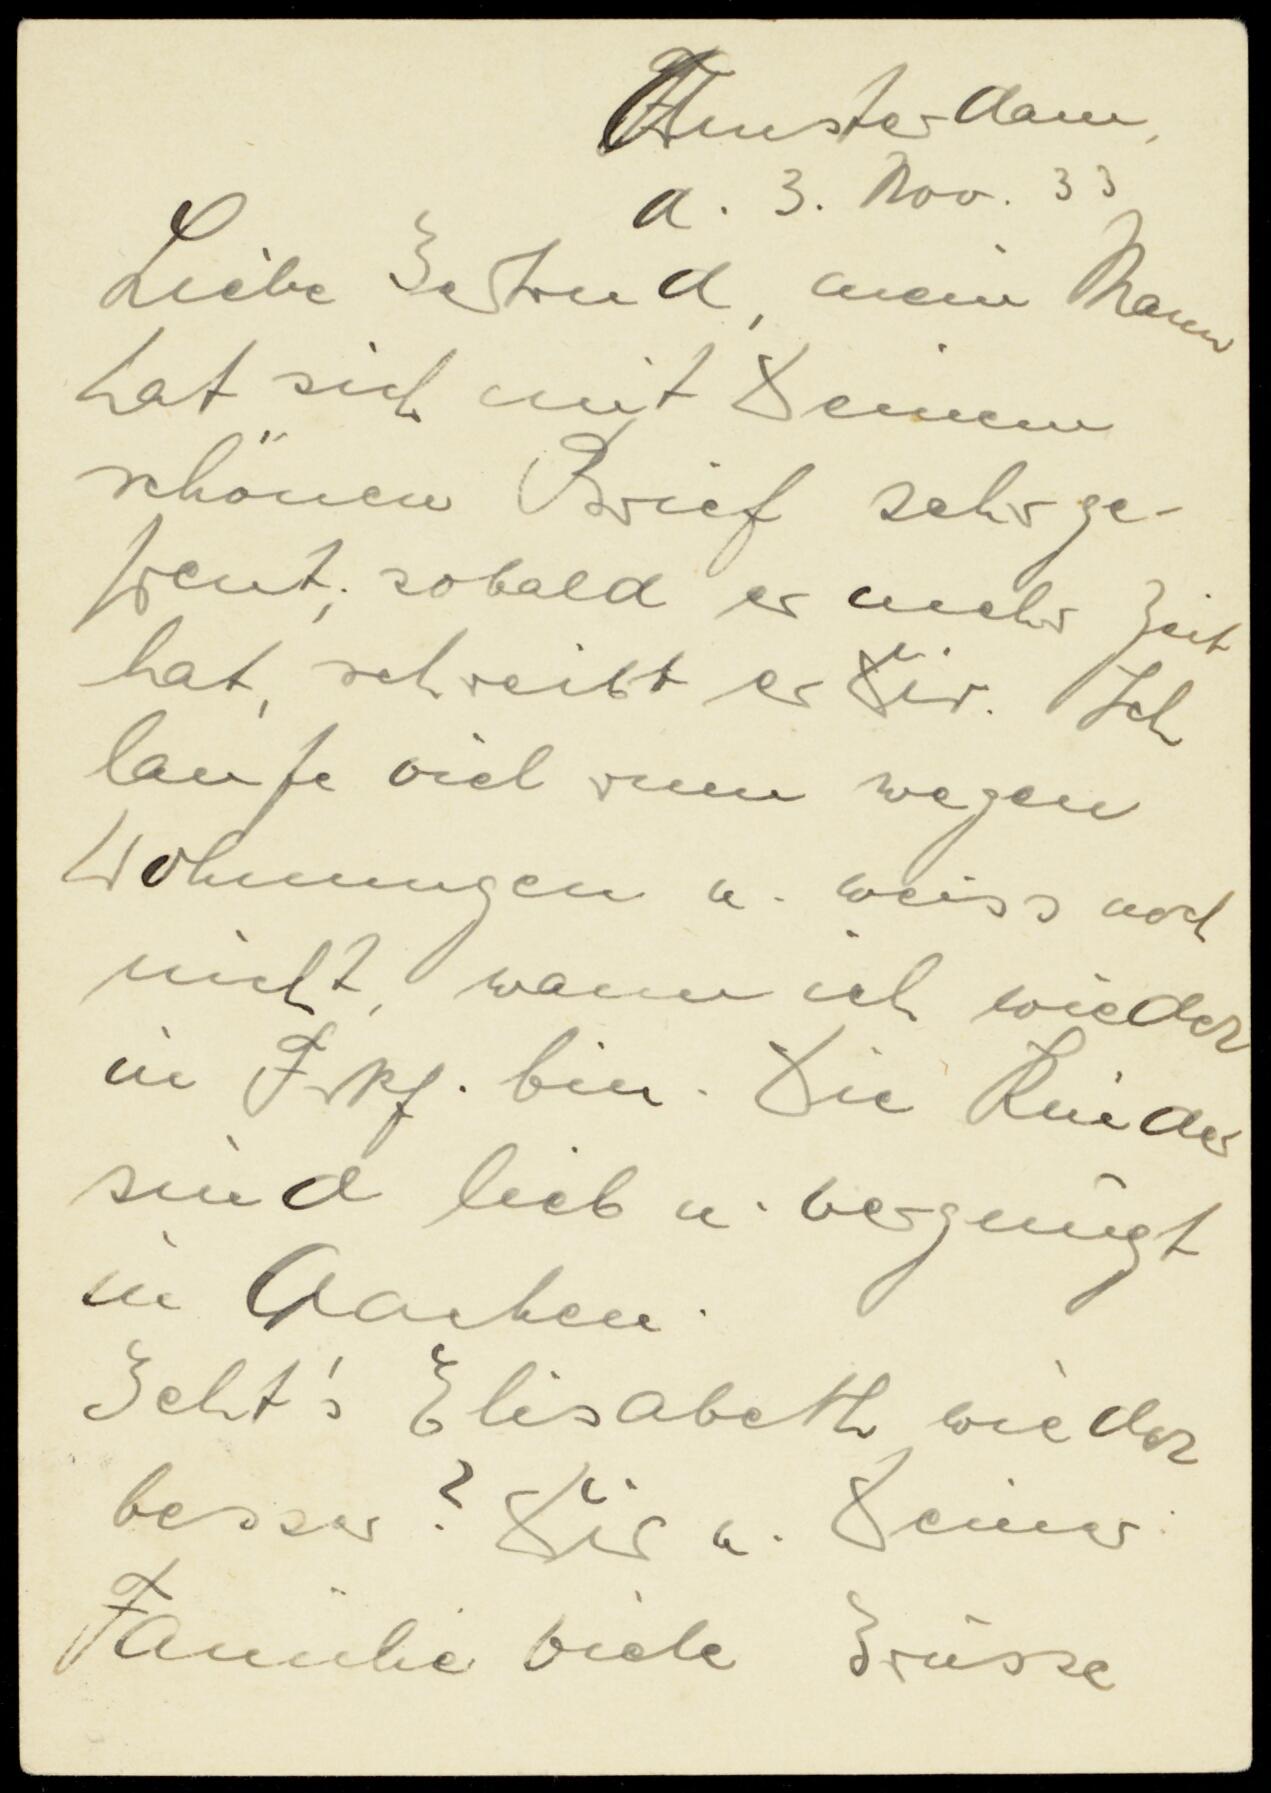 Amsterdam,
d. 3. Nov. 33
Liebe Gertrud, mein Mann
hat sich mit Deinem
schönen Brief sehr ge-
freut, sobald er mehr Zeit
hat, schreibt er Dir. Ich
laufe viel rum wegen
Wohnungen u. weiss noch
nicht, wann ich wieder
in Frkf. bin. Die Kinder
sind lieb u. vergnügt
in Aachen.
Geht's Elisabeth wieder
besser? Dir u. Deiner
Familie viele Grüsse